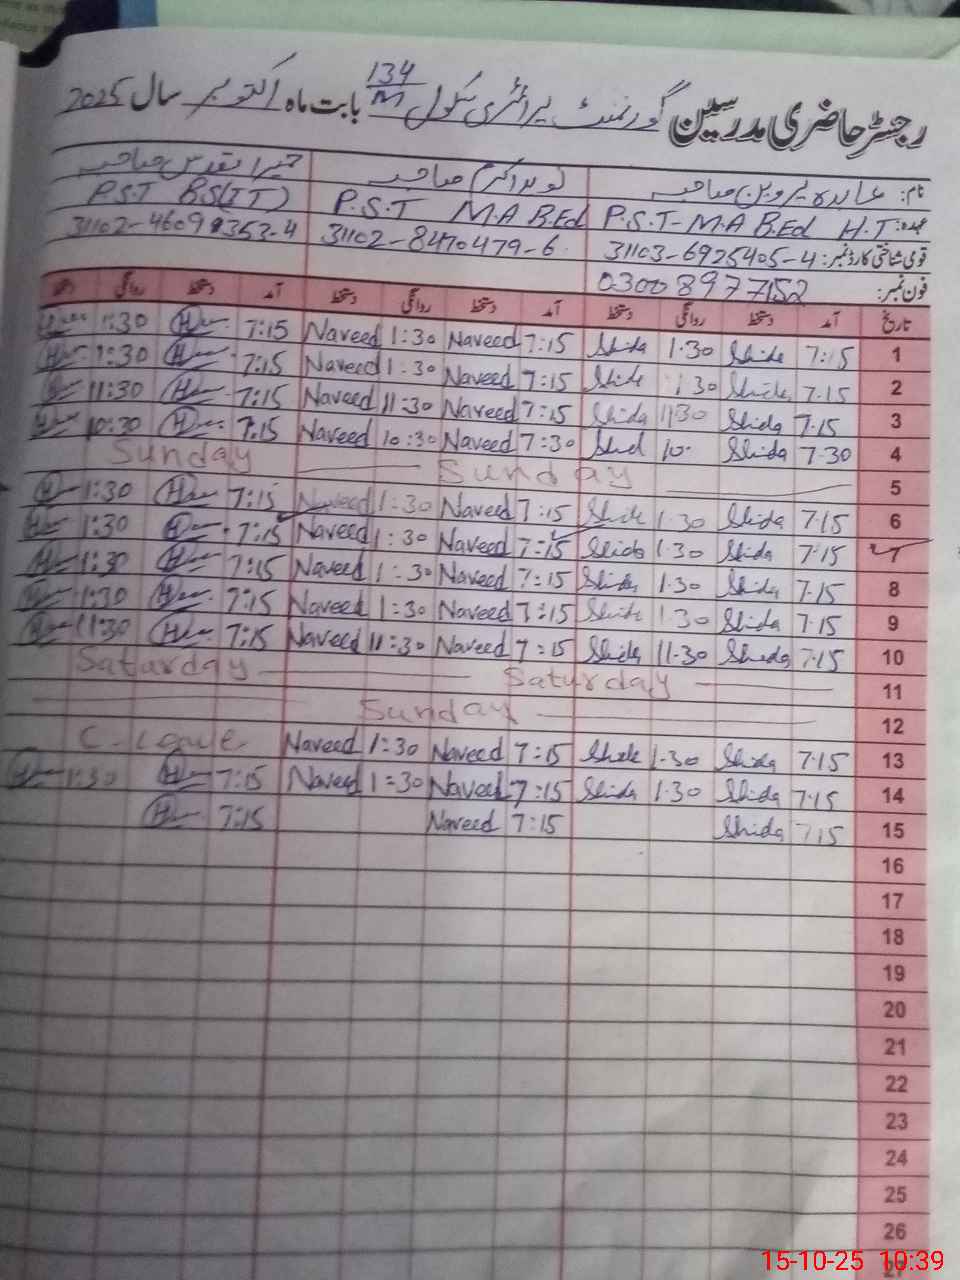 رجسٹر حاضری مدرسین گورنمنٹ پرائمری سکول 134/M بابت ماہ اکتوبر سال 2025
نام: عابدہ پروین صاحبہ نوید اکرم صاحب حمیرا تقدس صاحبہ
عہدہ: P.S.T-M.A B.Ed H.T P.S.T M.A B.Ed P.S.T BS(IT)
قومی شناختی کارڈ نمبر: 31103-6925405-4 31102-8470479-6 31102-4609
فون نمبر: 03008977152
تاریخ آمد دستخط روانگی دستخط آمد دستخط روانگی دستخط آمد دستخط روانگی دستخط
1 7:15 Shida 1.30 Shida 7:15 Naveed 1:30 Naveed 7:15 1:30
2 7.15 Shida 1.30 Shida 7:15 Naveed 1:30 Naveed 7:15 1:30
3 7.15 Shida 11.30 Shida 7:15 Naveed 11:30 Naveed 7:15 11:30
4 7.30 Shida 10. Shid 7:30 Naveed 10:30 Naveed 7:15 10:30
5 Sunday Sunday
6 7.15 Shida 1.30 Shida 7:15 Naveed 1:30 Naveed 7:15 1:30
7 7.15 Shida 1.30 Shida 7:15 Naveed 1:30 Naveed 7:15 1:30
8 7.15 Shida 1.30 Shida 7:15 Naveed 1:30 Naveed 7:15 1:30
9 7.15 Shida 1.30 Shida 7:15 Naveed 1:30 Naveed 7:15 1:30
10 7.15 Shida 11.30 Shida 7:15 Naveed 11:30 Naveed 7:15 11:30
11 Saturday Saturday
12 Sunday
13 7.15 Shida 1.30 Shida 7:15 Naveed 1:30 Naveed C-leave
14 7.15 Shida 1.30 Shida 7:15 Naveed 1:30 Naveed 7:15 1:30
15 7.15 Shida 7:15 Naveed 7:15
16
17
18
19
20
21
22
23
24
25
26
27
15-10-25 10:39